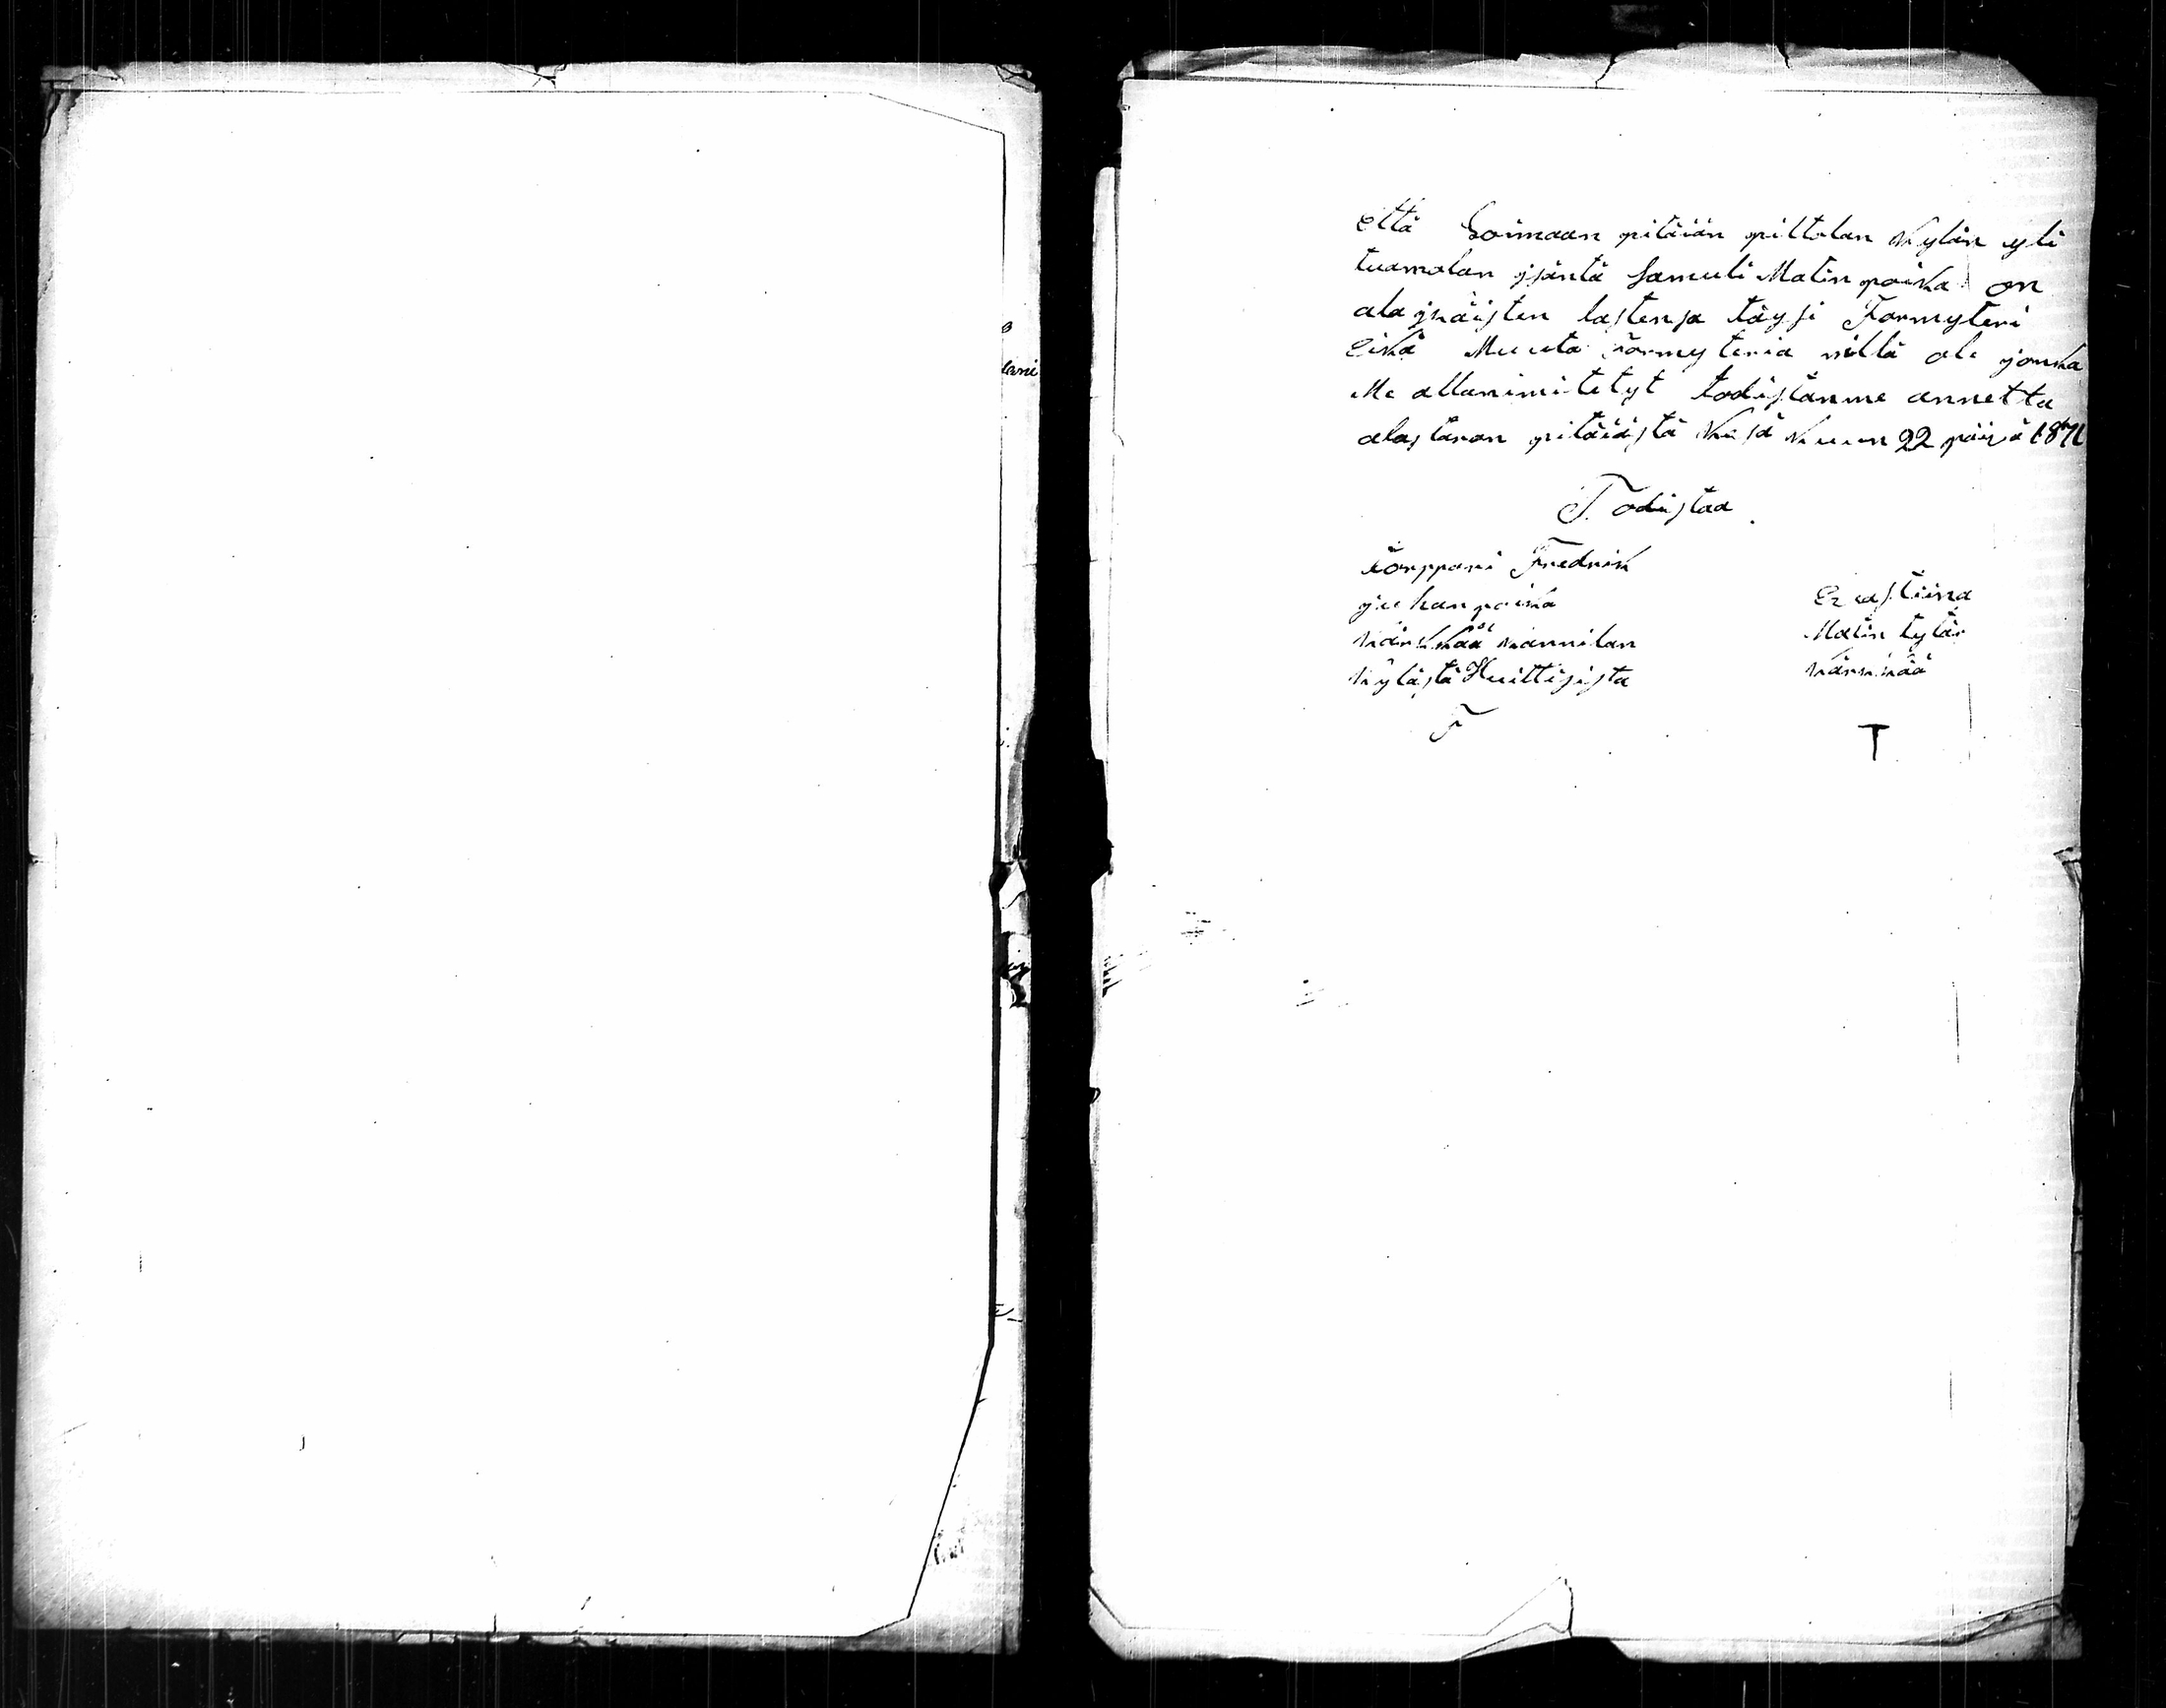 Että Loimaan pitäiän piltolan Kylän yli
tuamolan jsäntä Samuli Matin poika on
ala jkäisten lastensa täysi Formyteri
Eikä Muuta Förmyteria nillä ole jonka
Me allanimitetyt todistamme annettu
alastaron pitäiästä Kesä Kuun 22 päivä 1871
Todistaa
Torppari Fredrik
juhanpoika
Kärkkää Mannilan
Kylästä Huittisista
F
Matin tytär
Kärkkää
T